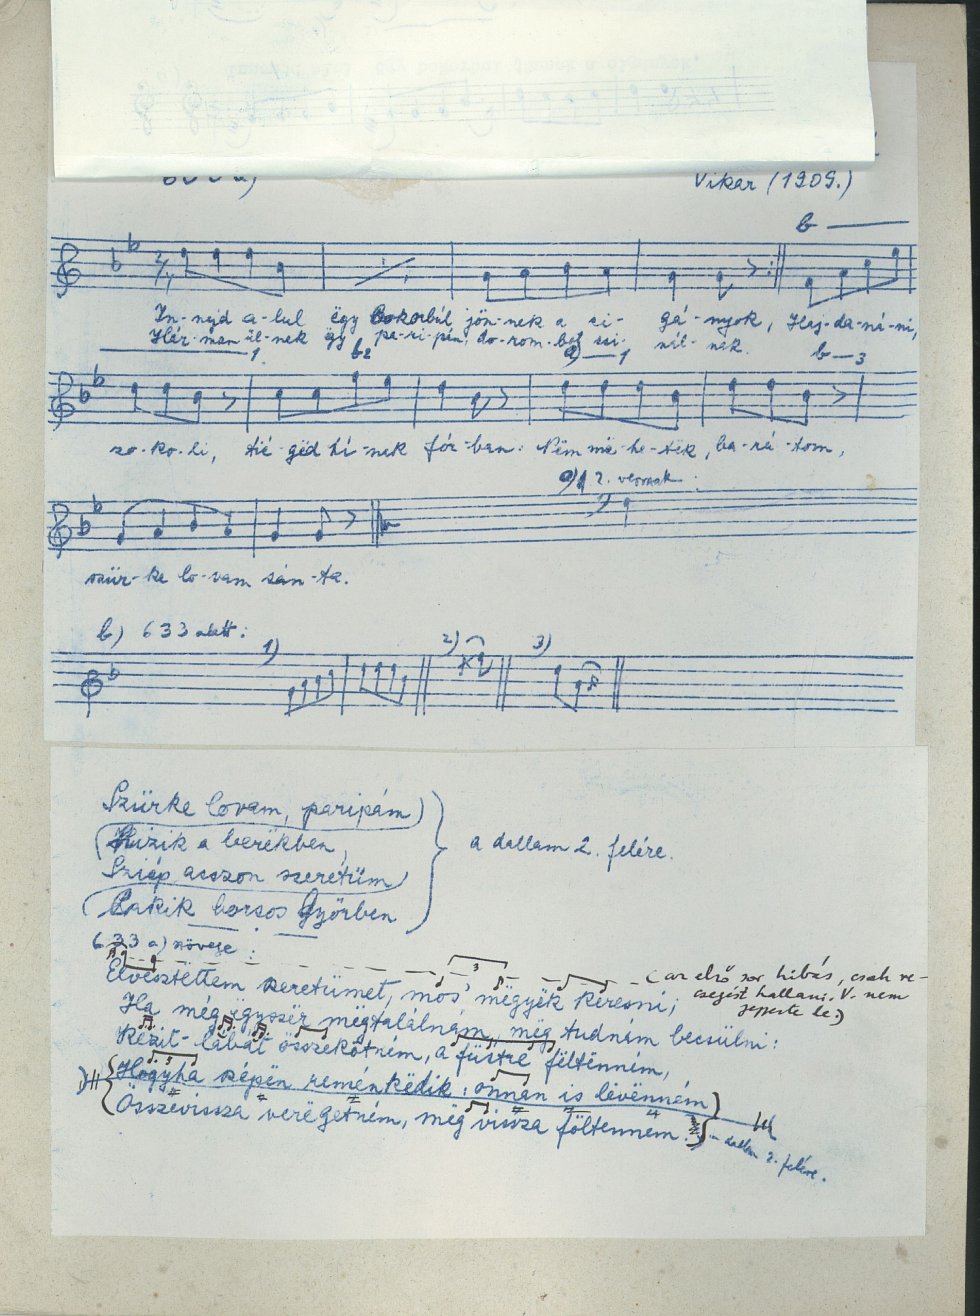 Vikar (1909.)
b
In-nejd a-lul ëgy bokorbúl jön-nek a ci-gá-nyok, Haj-da-ná-ni,
Hár-man ül-nek ëgy pa-ri-pán, do-rom-bol
1 b2 a) 1 b 3
zo-ko-li, tié-gëd hí-nek fór-ban: Nëm më-he-tëk, ba-rá-tom,
a) 1 2. versszak
szür-ke lo-vam sán-ta.
b) 633 alatt:
1) 2) 3)
Szürke lovam, paripám
Hízik a berëkben,
Sziép asszon szeretüm
Lakik borsos Győrben
a dallam 2. felére.
633 a) szövege:
Elvesztëttem szeretümet, mos' mëgyëk keresni;
(az első sor hibás, csak re-
csegést hallani. V. nem
jegyezte le.)
Ha még ëgyszër mëgtalálnám, mëg tudnám becsülni:
Kezit-lábát összekötném, a füstre föltënném,
Hogyha szépën reménkëdik, onnan is lëvënném
Összevissza verëgetném, mëg vissza föltënném.
dallam 2. felére.